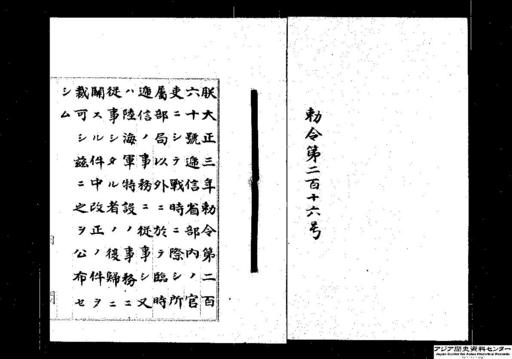 勅令第二百十六号
朕大正三年勅令第二百
六十號逓信省部内ノ官
吏ニシテ戰時ニ際シ所
屬部局以外ニ於テ臨時
逓信ノ事務ニ從事シ又
ハ陸海軍特設ノ事務ニ
從事シタル者ノ復歸ニ
關スル件中改正ノ件ヲ
裁可シ茲ニ之ヲ公布セ
シム
アジア歴史資料センター
Japan Center for Asian Historical Records